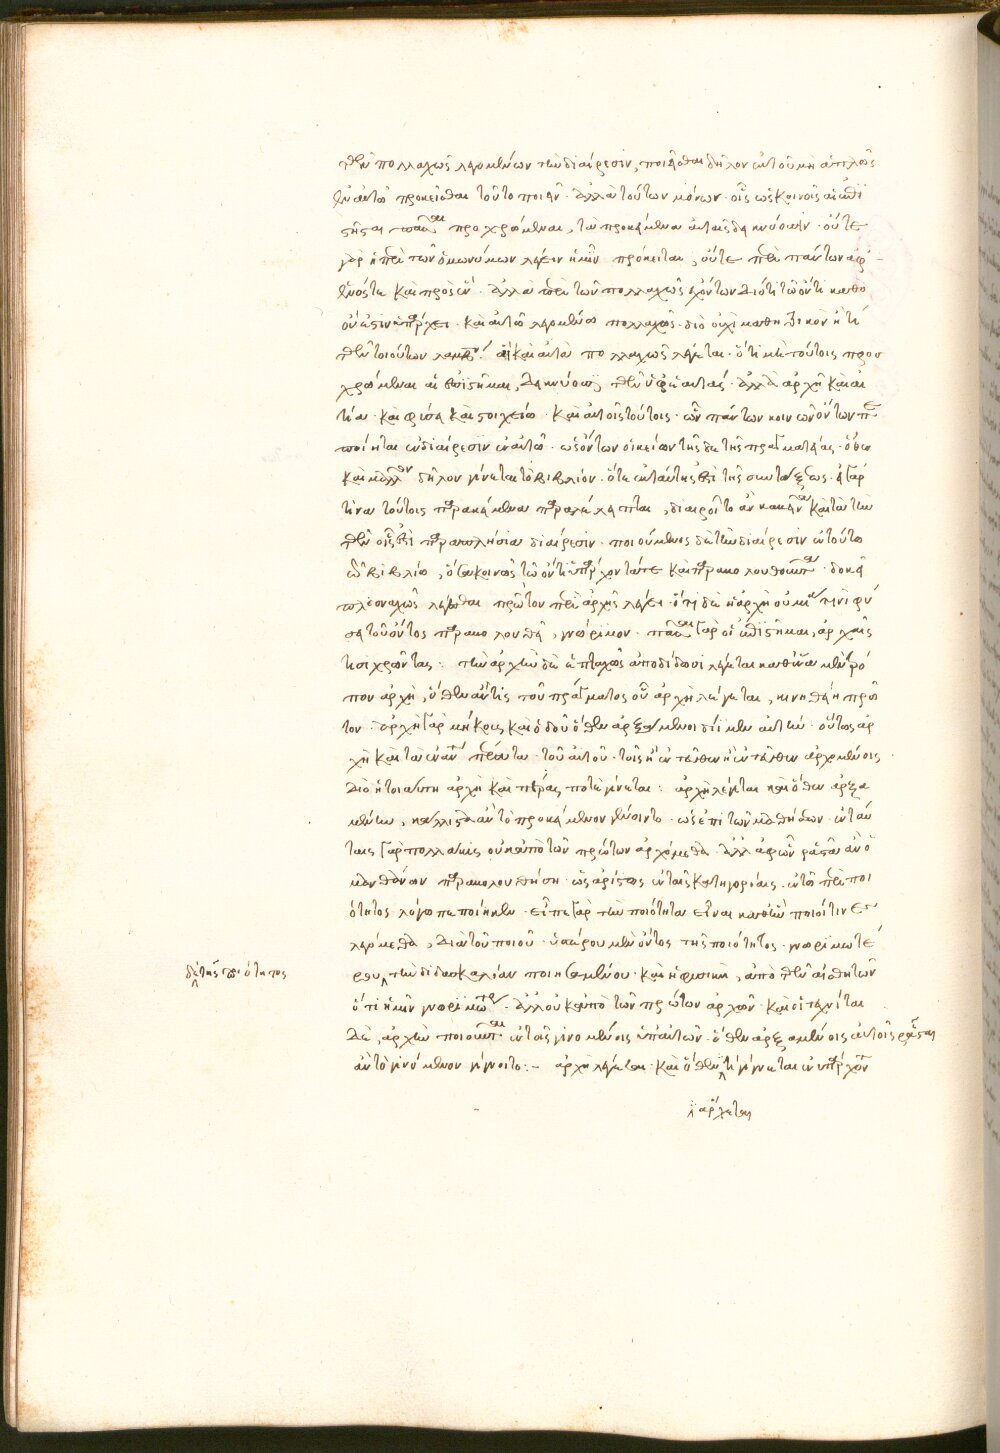 τῶν πολλαχῶς λεγομένων τὴν διαίρεσιν, ποιεῖσθαι δῆλον ἐκ τοῦ μὴ ἁπλῶς
ἐν αὐτῷ προκεῖσθαι τοῦτο ποιεῖν. ἀλλὰ τούτων μόνων. οἷς ὡς κοινοῖς αἱ ἐπι
στῆμαι πᾶσαι προσχρώμεναι, τὰ προκείμενα αὐταῖς δεικνύουσιν. οὔτε
γὰρ ἢ περὶ τῶν ὁμωνύμων λέγειν ἡμῖν πρόκειται, οὔτε περὶ πάντων ἀφ'
ἑνός τε καὶ πρὸς ἕν. ἀλλὰ περὶ τῶν πολλαχῶς ἐχόντων διότι τῷ ὄντι καθὸ
ὄν ἐστιν ὑπάρχει. καὶ αὐτῷ λεγομένῳ πολλαχῶς. διὸ οὐχὶ καθηξικὸν ἤ τι
τῶν τοιούτων λαμβάνει. εἰ καὶ αὐτὰ πολλαχῶς λέγεται. ὅτι μὴ τούτοις προσ
χρώμεναι αἱ ἐπιστῆμαι, δεικνύουσι τῶν ὑφ' ἑαυτάς. ἀλλὰ ἀρχῇ καὶ αἰ
τίᾳ. καὶ φύσει καὶ στοιχείῳ. καὶ αὐτοῖς τούτοις. ὧν πάντων κοινῶν ὄντων
ποιεῖται ἐν διαίρεσιν ἐν αὐτῷ. ὡς ὄντων οἰκείων τῆσδε τῆς πραγματείας. ὅθεν
καὶ μᾶλλον δῆλον γίνεται τὸ βιβλίον. ὅτι ἐκ ταύτης ἐστὶ τῆς συντάξεως. εἰ γάρ
τινα τούτοις παρακείμενα παραλέλειπται, διαιροῖτο ἂν κἀκεῖνα κατὰ τὴν
τῶν οἷς ἐστὶ παραπλήσια διαίρεσιν. ποιούμενος δὲ τὴν διαίρεσιν ἐν τούτῳ
τῷ βιβλίῳ, ὅσα κοινῶς τῷ ὄντι ὑπάρχοντά τε καὶ παρακολουθοῦντα. δοκεῖ
πλεοναχῶς λέγεσθαι πρῶτον περὶ ἀρχῆς λέγει. ὅτι δὲ ἡ ἀρχὴ οὐ μιᾷ τινι φύ
σει τοῦ ὄντος παρακολουθεῖ, γνώριμον. πᾶσαι γὰρ οἱ ἐπιστῆμαι, ἀρχαῖς
τισι χρῶνται: τὴν ἀρχὴν δὲ ἑπταχῶς ἀποδίδωσι λέγεται καθ' ἕνα μὲν τρό
πον ἀρχὴ, ὅθεν ἄν τις τοῦ πράγματος οὗ ἀρχὴ λέγεται, κινηθείη πρῶ
τον. ἀρχὴ γὰρ μήκους καὶ ὁδοῦ ὅθεν ἀρξάμενοι δίιμεν αὐτήν. οὕτως ἀρ
χὴ καὶ τὰ ἐναντία πέρατα. τοῦ αὐτοῦ. τοῖς ἢ ἐντεῦθεν ἢ ἐντεῦθεν ἀρχομένοις
διὸ ἡ τοιαύτη ἀρχὴ καὶ πέρας ποτὲ γίνεται: ἀρχὴ λέγεται καὶ ὅθεν ἀρξα
μένων, κάλλιστα ἂν τὸ προκείμενον γένοιτο. ὡς ἐπὶ τῶν μαθήσεων. ἐν ταύ
ταις γὰρ πολλάκις οὐκ ἀπὸ τῶν πρώτων ἀρχόμεθα. ἀλλ' ἀφ' ὧν ῥᾷστα ἂν ὁ
μανθάνων παρακολουθήσῃ. ὡς ἀρίστως ἐν ταῖς κατηγορίαις. ἐν τῷ περὶ ποι
ότητος λόγῳ πεποίηκεν. εἶπε γὰρ τὴν ποιότητα εἶναι καθ' ἣν ποιοί τινες
λεγόμεθα, διὰ τοῦ ποιοῦ. ὑστέρου μὲν ὄντος τῆς ποιότητος. γνωριμωτέ
δὲ τῆς ποιότητος
ρου, τὴν διδασκαλίαν ποιησαμένου. καὶ ἡ φυσικὴ, ἀπὸ τῶν αἰσθητῶν
ὅτι ἡμῖν γνωριμώτερα. ἀλλ' οὐκ ἀπὸ τῶν πρώτων ἀρχῶν. καὶ οἱ τεχνῖται
δὲ, ἀρχὴν ποιοῦνται ἐν τοῖς γινομένοις ὑπ' αὐτῶν. ὅθεν ἀρξαμένοις αὐτοῖς ῥᾷστα
ἂν τὸ γινόμενον γένοιτο:– ἀρχὴ λέγεται. καὶ ὅθεν τι γίνεται ἐνυπάρχον
ἄρχεται